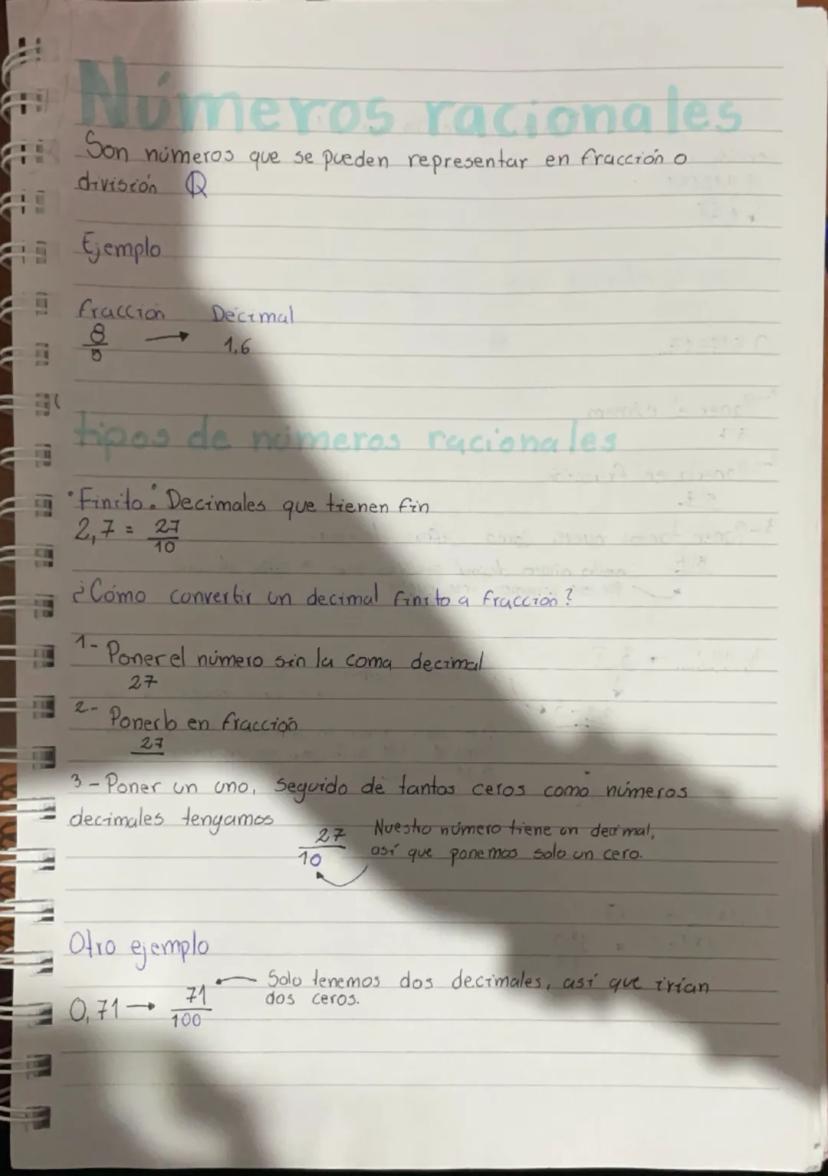 Números racionales
Son números que se pueden representar en fracción o
división Q
Ejemplo
fracción Decimal
8/5 → 1,6
tipos de números racionales
"Finito": Decimales que tienen fin
2,7 = 27/10
¿Cómo convertir un decimal finito a fracción?
1- Poner el número sin la coma decimal
27
2- Ponerlo en fracción
27
3- Poner un uno, seguido de tantos ceros como números
decimales tengamos
27/10 Nuestro número tiene un decimal,
así que ponemos solo un cero.
Otro ejemplo
0,71 → 71/100 ← Solo tenemos dos decimales, así que irían
dos ceros.